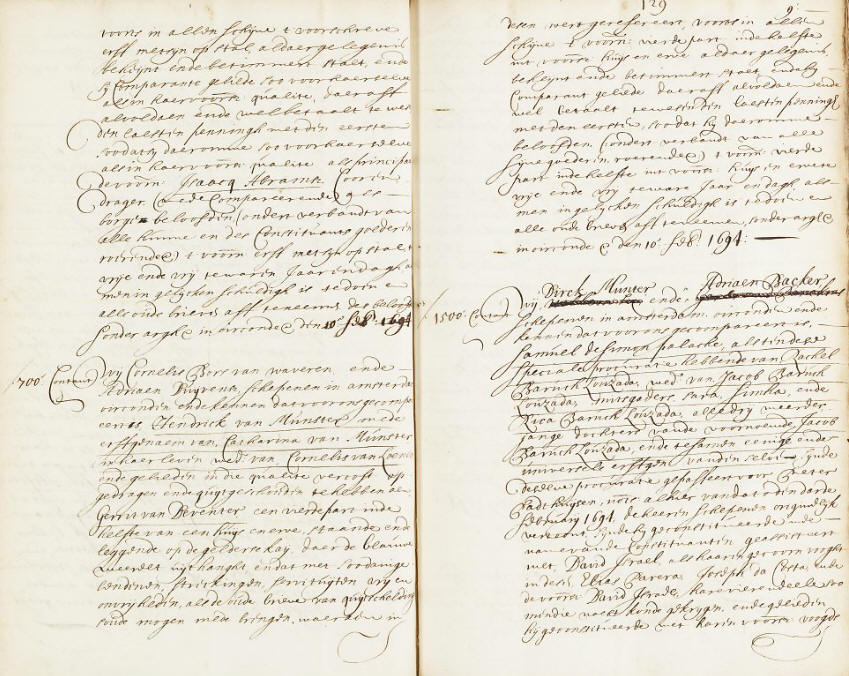 voorts in allen schijne t voorschreve
erff met sijn op stal, aldaer gelegen is
beheijnt ende betimmert staet, ende
sij Comparante gelyde soo voor haer selve
als in haer voorn qualite, daer aff
al voldaen ende wel betaalt te wesen
den laesten penningh met den eersten
soo dat sij daeromme soo voor haer selve
als in haer voorn qualite als principae
de voorn Isaacq Abramsz Cooren
drager (mede Compareerende) als
borge beloofden (onder verbandt van
alle hunne en des Constituants goederen
roerende &) t voorn erff met sijn op stal
vrije ende vrij te waren Jaar en dagh als
men in gelijcken schuldigh is te doen en
alle oude brieven aff te neemen des beloofden
sonder argh & in oirconde & den 10e feb: 1694
/700: Contant
Wij Cornelis Bors van waveren, ende
Adriaen Duyvensz schepenen in amsterdam
oirconden ende kennen dat voor ons gecomp
eert is Hendrick van Munster mede
erffgenaem van Catharina van Munster
in haer leven wed: van Cornelis van
ende geleden in die qualite vercoft op
gedragen ende quijtgescholden te hebben aen
Gerrit van Deventer een vierde part inde
helfte van een huys en erve, staande ende
leggende op de gelderse kaij, daer de blauwe
weerelt uijthanght en dat met soodanige
belendinen, streckingen, servituijten vrij en
onvrijheden, als de oude brieve van quijtscheldinge
soude mogen mede brengen, waer aen in
129
9:
desen wert gerefereert, voorts in allen
schijne t voorn: vierde part inde helfte
int voorn huys en erve aldaer gelegen is
beheijnt ende betimmert staet ende hij
Comparant gelyde daer aff al voldaen ende
wel betaalt te wesen den laesten penningh
met den eersten, soo dat hij daeromme
beloofden (onder verbandt van alle
sijne goederen, roerende &) t voorn vierde
part inde helfte int voorn: huys en erve
vrije ende vrij te waren Jaar en dagh, als
men in gelijcken schuldigh is te doen en
alle oude brieven aff te neemen, sonder argh &
in oirconde & den 10e feb: 1694:
/1500: Contant
Wij, Dirck Munter ende Adriaen Backer
schepenen in amsterdam oirconden ende
kennen dat voor ons gecompareert is,
Samuel de Simgh palache, als in dese
speciale procuratie hebbende van Rachel
Baruch Louzada, wed: van Jacob Baruch
Louzada, mitsgaders, Sara, Simha, ende
Rica Baruch Louzada, alle drij meerder
jarige dochters vande voornoemde Jacob
Baruch Louzada, ende tesamen eenige ende
universele erffgen: vanden selve sijnde
deselve procuratie gepasseert voor Pieter
Padthuysen, nots alhier van dato den darde
february 1694, de heeren schepenen
vertoont sijnde hij geconstitueerde
van evande Constituanten geassisteert
met, David Israel, als haaren gecoren vooght
in desen, Elias Parera, Joseph da Costa, ende
de voorn: David Israel,
min die naest konde gekrijgen, ende geleden
hij geconstitueerde met haren voorn: vooghde